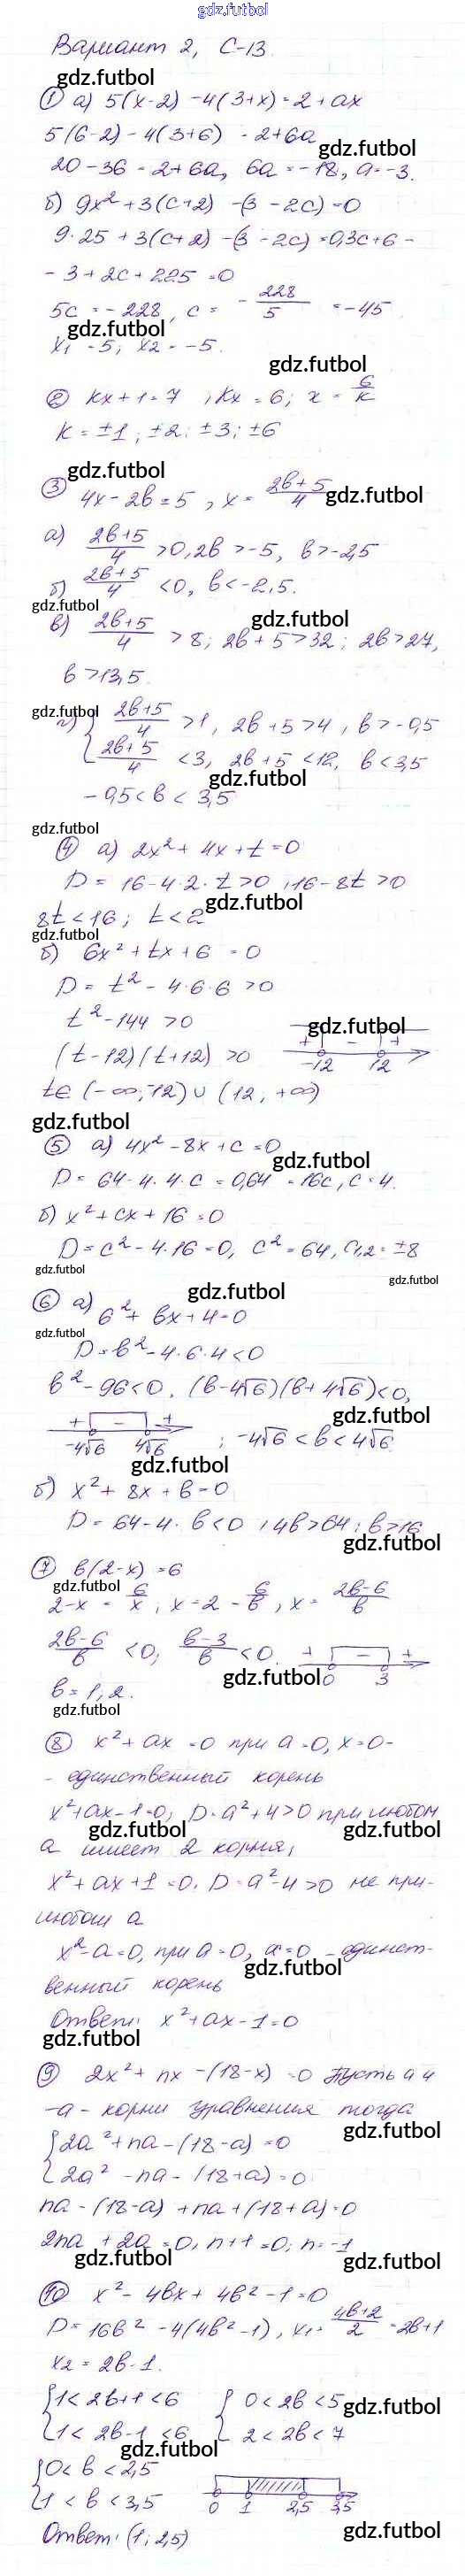 gdz.futbol
Вариант 2, С-13
gdz.futbol
① а) 5(x-2) -4(3+x) = 2 + ax
5(6-2) - 4(3+6) - 2+6a
gdz.futbol
20 - 36 - 2 + 6a, 6a = -18, a = -3.
б) 9x² + 3(c+2) -(3 - 2c) = 0
9·25 + 3(c+2) -(3 - 2c) = 0, 3c + 6 -
- 3 + 2c + 225 = 0
5c = - 228, c = - 228/5 = -45
gdz.futbol
x₁ - 5; x₂ = -5.
gdz.futbol
② kx + 1 = 7 ; kx = 6; x = 6/k
k = ±1; ±2; ±3; ±6
gdz.futbol
③ 4x - 2b = 5 , x = (2b+5)/4
gdz.futbol
а) (2b+5)/4 > 0, 2b > -5, b > -2,5
б) (2b+5)/4 < 0, b < -2,5.
gdz.futbol
gdz.futbol
в) (2b+5)/4 > 8; 2b + 5 > 32; 2b > 27,
b > 13,5.
gdz.futbol
г) { (2b+5)/4 > 1, 2b + 5 > 4, b > -0,5
(2b+5)/4 < 3, 2b + 5 < 12, b < 3,5
gdz.futbol
- 0,5 < b < 3,5
gdz.futbol
④ а) 2x² + 4x + t = 0
D = 16 - 4·2·t > 0, 16 - 8t > 0
gdz.futbol
8t < 16; t < 2
gdz.futbol
б) 6x² + tx + 6 = 0
D = t² - 4·6·6 > 0
t² - 144 > 0
gdz.futbol
(t-12)(t+12) > 0 + - + -12 12
t ∈ (-∞; -12) ∪ (12, +∞)
gdz.futbol
⑤ а) 4x² - 8x + c = 0
gdz.futbol
D = 64 - 4·4·c = 0, 64 - 16c, c = 4.
б) x² + cx + 16 = 0
D = c² - 4·16 = 0, c² = 64, c₁,₂ = ±8
gdz.futbol
gdz.futbol
gdz.futbol
⑥ а) 6² + bx + 4 = 0
gdz.futbol
D = b² - 4·6·4 < 0
b² - 96 < 0, (b-4√6)(b+4√6) < 0,
gdz.futbol
+ - + -4√6 4√6 ; -4√6 < b < 4√6
gdz.futbol
б) x² + 8x + b = 0
D = 64 - 4·b < 0, 4b > 64; b > 16
gdz.futbol
⑦ b(2-x) = 6
gdz.futbol
2-x = 6/x; x = 2 - 6/b, x = (2b-6)/b
(2b-6)/b < 0; (b-3)/b < 0. + - + 0 3
gdz.futbol
b = 1, 2.
gdz.futbol
⑧ x² + ax = 0 при a = 0, x = 0 -
- единственный корень
x² + ax - 1 = 0; D = a² + 4 > 0 при любом
gdz.futbol
gdz.futbol
a имеет 2 корня,
x² + ax + 1 = 0. D = a² - 4 > 0 не при
любом a
x² - a = 0, при a = 0, x = 0 - единст-
gdz.futbol
венный корень
Ответ: x² + ax - 1 = 0
gdz.futbol
⑨ 2x² + nx -(18-x) = 0 Пусть a и
-a - корни уравнения тогда
gdz.futbol
{ 2a² + na - (18-a) = 0
2a² - na - (18+a) = 0
na - (18-a) + na + (18+a) = 0
2na + 2a = 0, n + 1 = 0; n = -1
gdz.futbol
gdz.futbol
⑩ x² - 4bx + 4b² - 1 = 0
D = 16b² - 4(4b² - 1), x₁ = (4b+2)/2 = 2b+1
x₂ = 2b - 1.
{ 1 < 2b+1 < 6 { 0 < 2b < 5
gdz.futbol
1 < 2b-1 < 6 2 < 2b < 7
gdz.futbol
{ 0 < b < 2,5
1 < b < 3,5 0 1 2,5 3,5
Ответ: (1; 2,5)
gdz.futbol